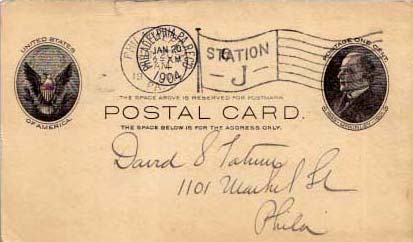 UNITED STATES
OF AMERICA.
PHILADELPHIA, PA. REC'D
JAN 20
1904
STATION
J
POSTAGE ONE CENT.
THE SPACE ABOVE IS RESERVED FOR POSTMARK.
POSTAL CARD.
THE SPACE BELOW IS FOR THE ADDRESS ONLY.
David S Tatum
1101 Market St
Phila